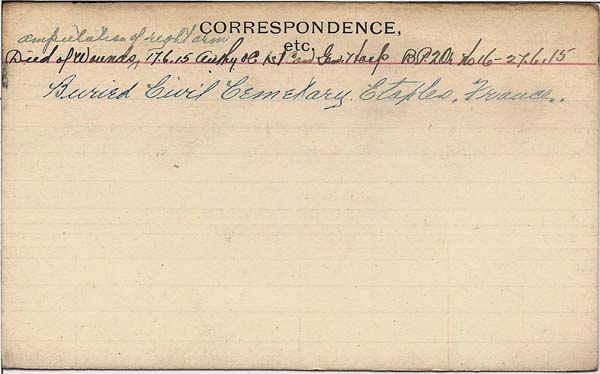 CORRESPONDENCE,
etc.
amputation of right arm
Died of Wounds, 17.6.15 1st Can Gen Hosp B.P.2 Or No 16-27.6.15
Buried Civil Cemetary. Etaples, France..